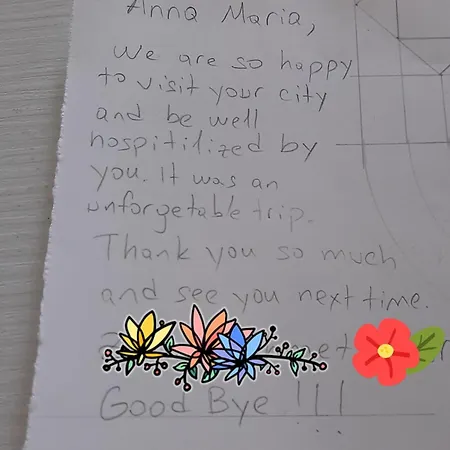 Anna Maria,
We are so happy
to visit your city
and be well
hospitilized by
you. It was an
unforgetable trip.
Thank you so much
and see you next time.
Good Bye !!!